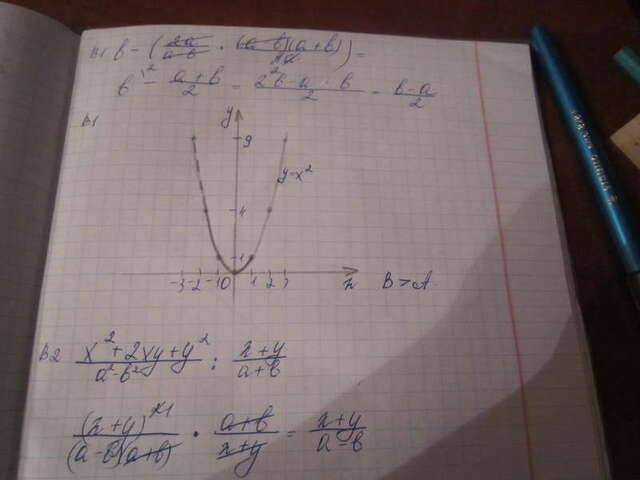 В1 b - (2a/a-b · (a-b)(a+b)/4a) =
b - a+b/2 = 2b-a-b/2 = b-a/2
В1
y
9
y=x²
4
1
-3 -2 -1 0 1 2 3 x
B > A
В2 x²+2xy+y²/a²-b² : x+y/a+b
(x+y)²/(a-b)(a+b) · a+b/x+y = x+y/a-b